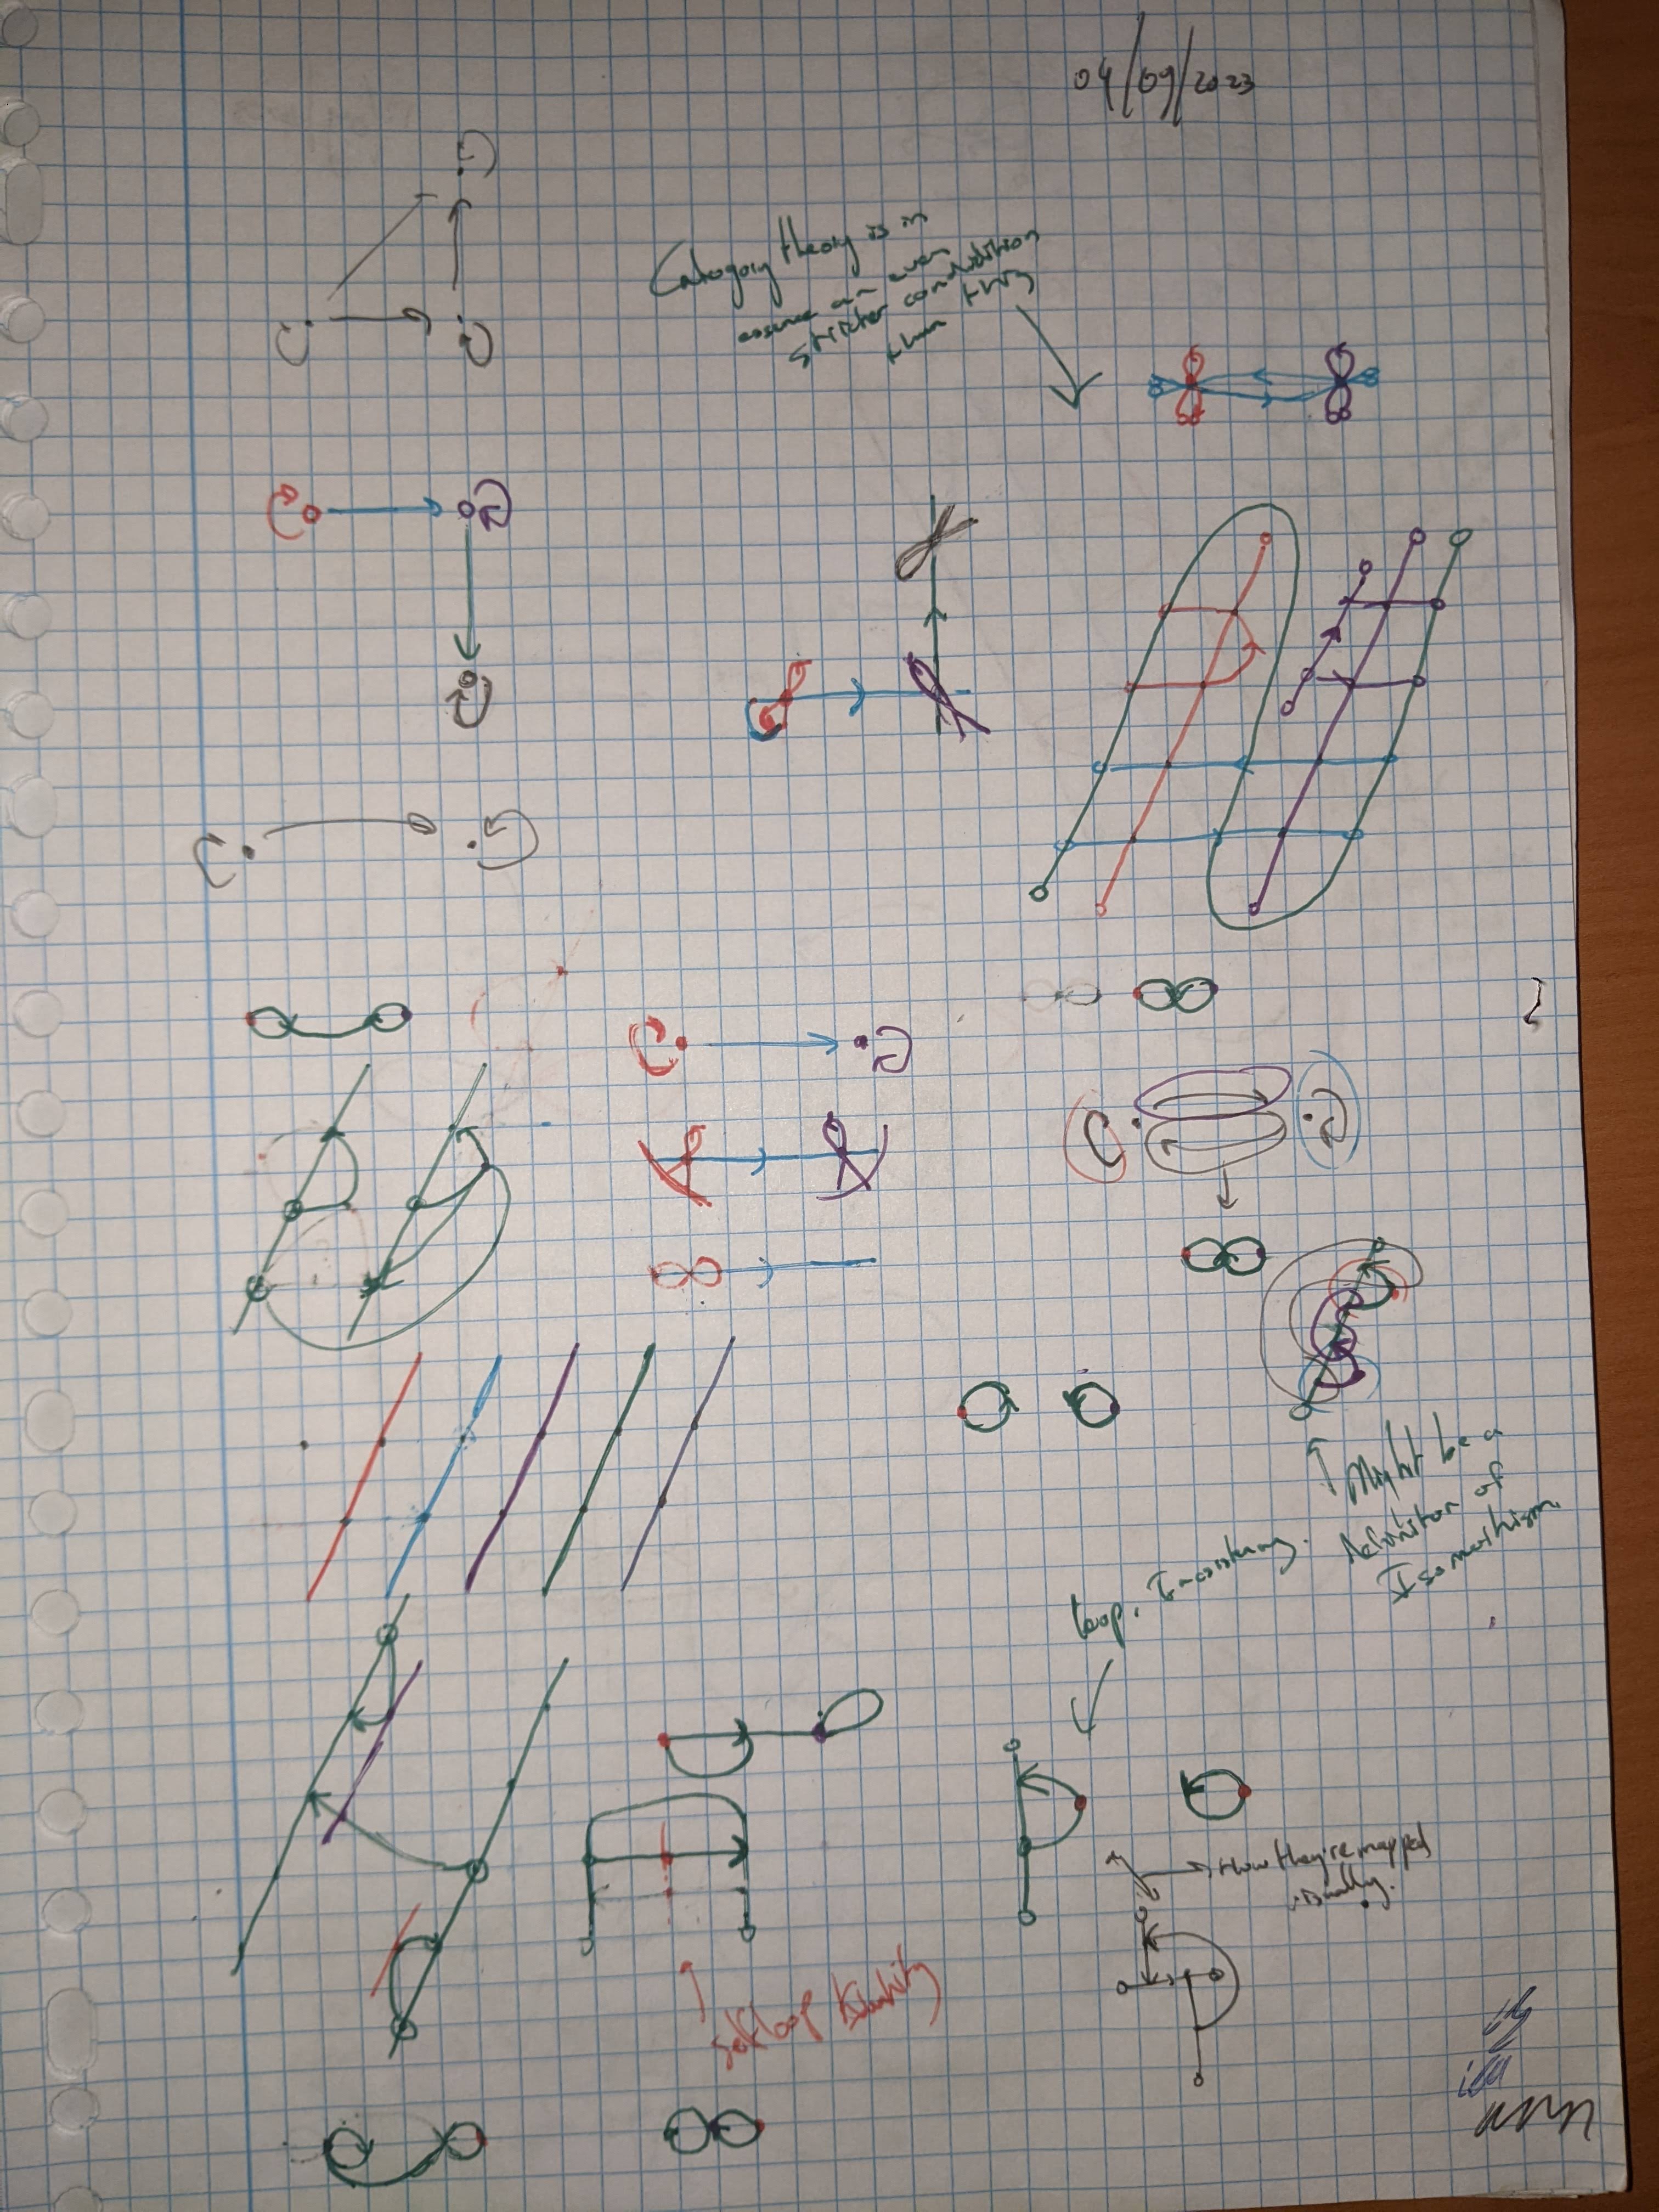 04/09/2023
Category theory is in
essence an even
stricter condidition
than this
Might be a
definition of
Isomorthism
loop.
How they're mapped
usually.
self loop Identity